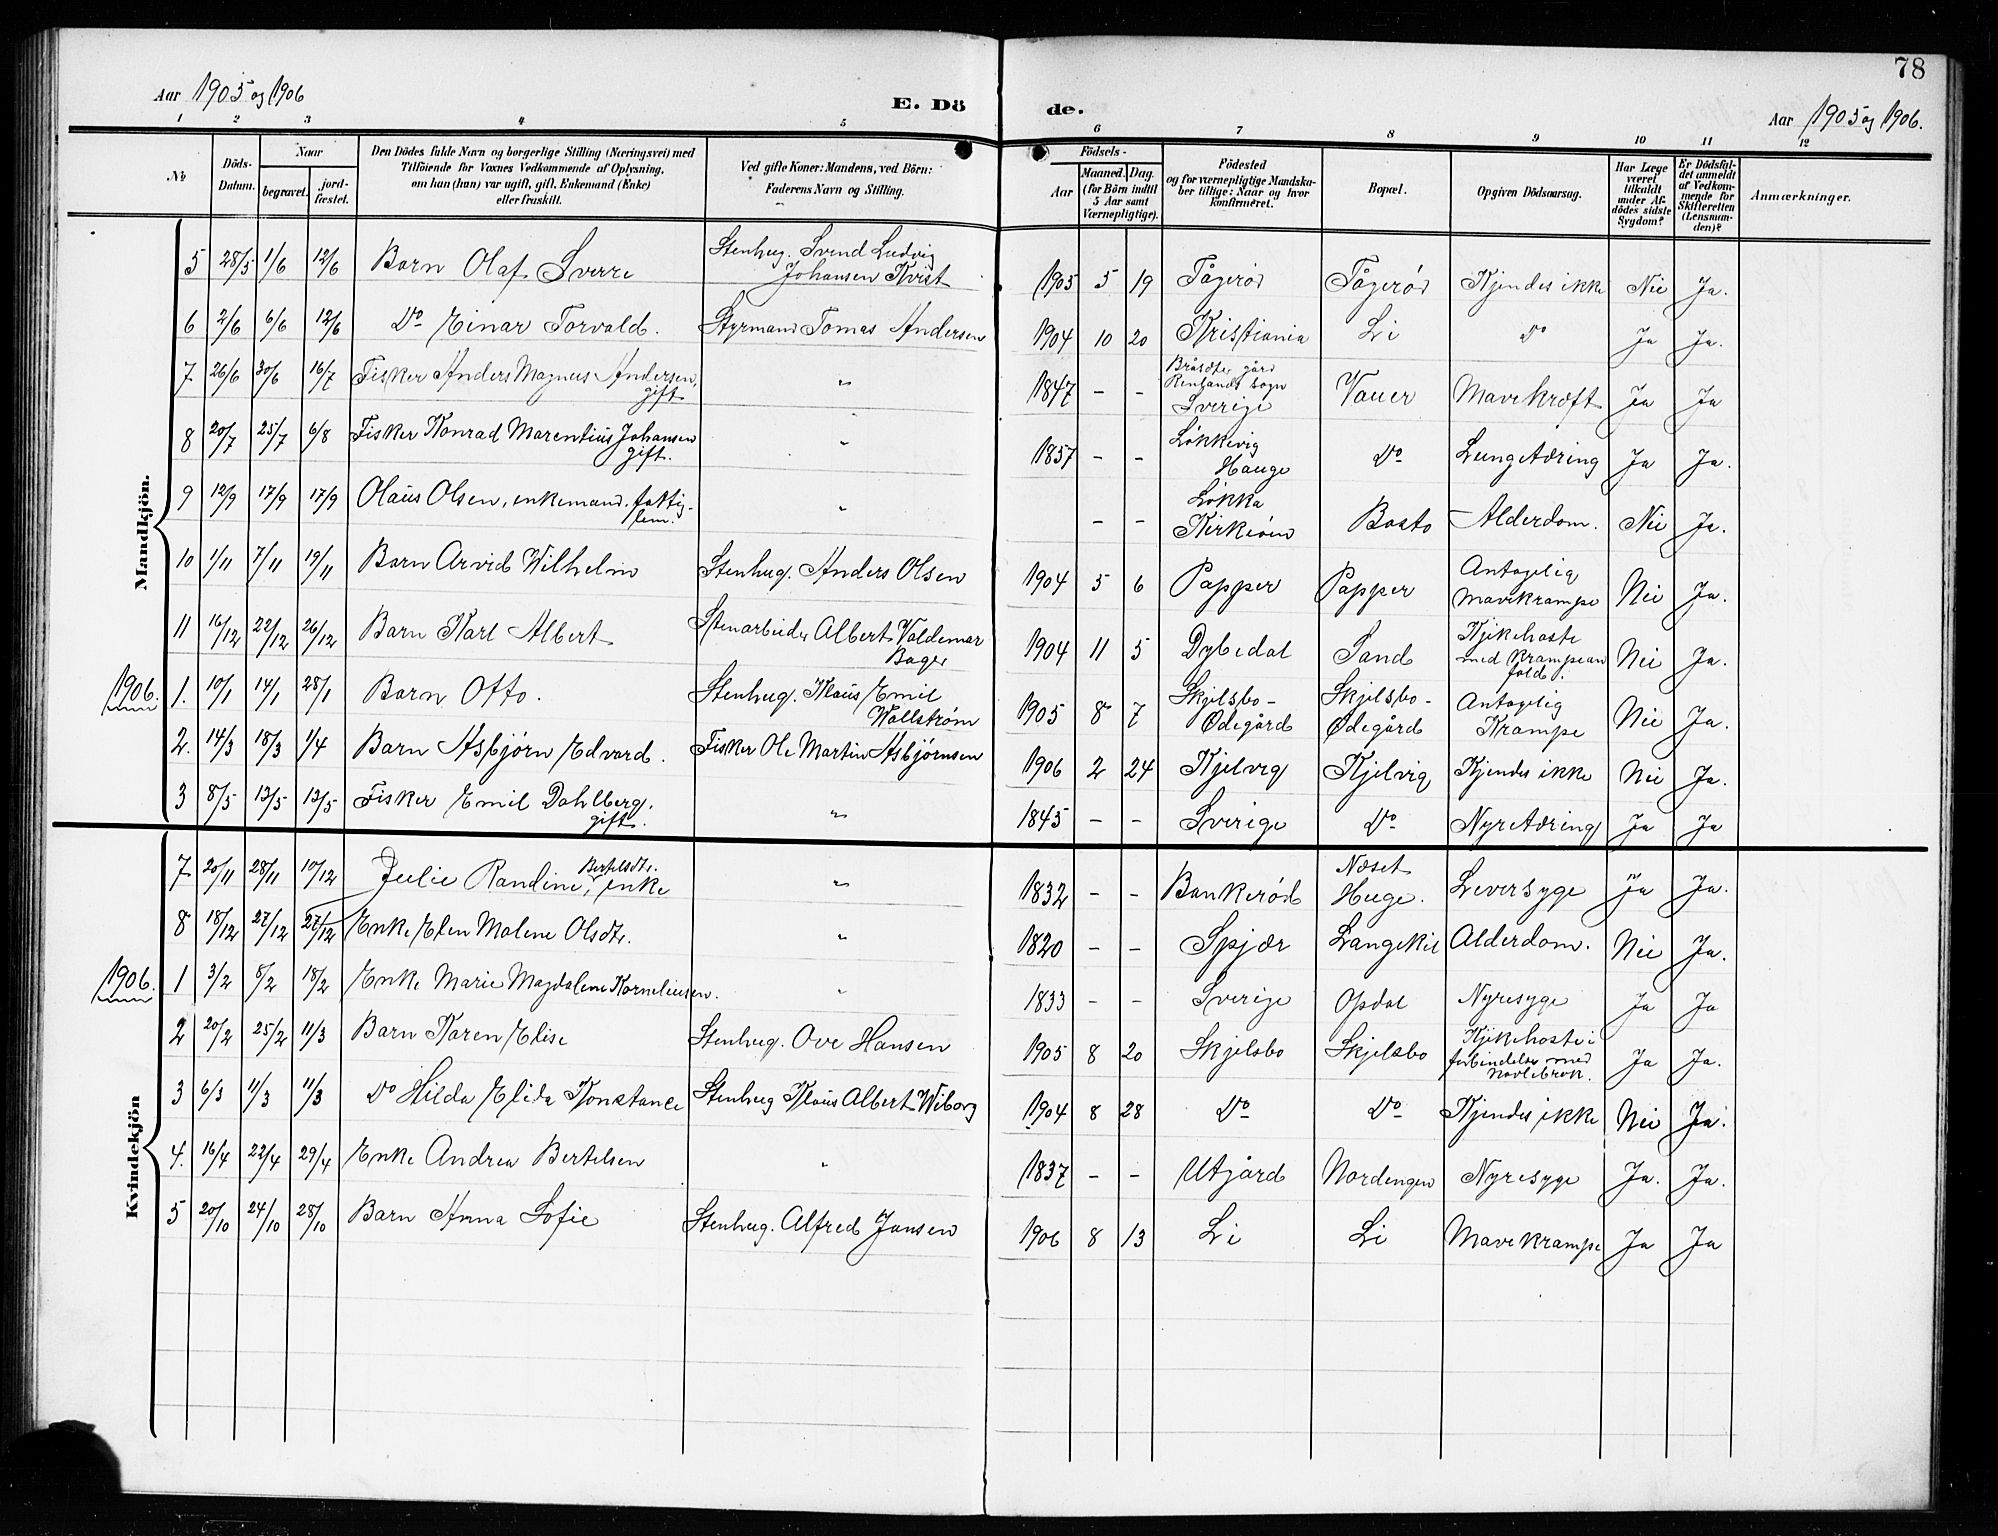 78
Aar 1905 og 1906
E. Dö de.
Aar 1905 og 1906.
1 2 3 4 5 6 7 8 9 10 11 12
No
Döds-Datum.
Naar
begravet.
jord-fæstet.
Den Dödes fulde Navn og borgerlige Stilling (Næringsvei) med
Tilföiende for Voxnes Vedkommende af Oplysning,
om han (hun) var ugift, gift, Enkemand (Enke)
eller fraskilt.
Ved gifte Koner: Mandens, ved Börn:
Faderens Navn og Stilling.
Födsels-
Aar
Maaned. Dag.
(for Börn indtil
5 Aar samt
Værnepligtige).
Födested
og for værnepligtige Mandska-
ber tillige: Naar og hvor
konfirmeret.
Bopæl.
Opgiven Dödsaarsag.
Har Læge
været
tilkaldt
under Af-
dödes sidste
Sygdom?
Er Dödsfal-
det anmeldt
af Vedkom-
mende for
Skifteretten
(Lensman-
den)?
Anmærkninger.
Mandkjön.
5 28/5 1/6 12/6 Barn Olaf Sverre Stenhug. Svend Ludvig Johansen Kvist 1905 5 19 Tågerød Tågerød Kjendes ikke Nei Ja.
6 2/6 6/6 12/6 Do Einar Torvald. Styrmand Tomas Andersen 1904 10 20 Kristiania Li Do Ja Ja.
7 26/6 30/6 16/7 Fisker Anders Magnus Andersen, gift " 1847 - - gård sogn Sverige Vauer Mavekræft Ja Ja
8 20/7 25/7 6/8 Fisker Konrad Marentius Johansen gift. " 1857 - - Løkkevig Hauge Do Lungetæring Ja Ja.
9 12/9 17/9 17/9 Olaus Olsen, enkemand. fattig-lem. " - - Løkka Kirkeøen Basto Alderdom. Nei Ja.
10 1/11 7/11 19/11 Barn Arvid Wilhelm Stenhug. Anders Olsen 1904 5 6 Papper Papper Antagelig Mavekrampe Nei Ja.
11 16/12 22/12 26/12 Barn Karl Albert Stenarbeider Albert Valdemar Bager 1904 11 5 Dybedal Sand Kikehoste med Krampeanfald. Nei Ja.
1906.
1. 10/1 14/1 28/1 Barn Otto. Stenhug. Klaus Emil Wallstrøm 1905 8 7 Skjelsbo-Ødegård Skjelsbo-Ødegård Antagelig Krampe Nei Ja.
2. 14/3 18/3 1/4 Barn Asbjørn Edvard. Fisker Ole Martin Asbjørnsen 1906 2 24 Kjelvig Kjelvig Kjendes ikke Nei Ja.
3 8/5 13/5 13/5 Fisker Emil Dahlberg. gift. " 1845 - - Sverige Do Nyretæring Ja Ja
Kvindekjön
7 20/11 28/11 10/12 Julie Randine Bertelsdtr., enke " 1832 - - Bankerød Næset Huge. Leversyge Ja Ja.
8 18/12 27/12 27/12 Enke Elen Malene Olsdtr. " 1820 - - Spjær Langekil Alderdom. Nei Ja.
1906.
1 3/2 8/2 18/2 Enke Marie Magdalene Korneliusen. " 1833 - - Sverige Opdal Nyresyge Ja Ja
2 20/2 25/2 11/3 Barn Karen Elise Stenhug. Ove Hansen 1905 8 20 Skjelsbo Skjelsbo Kjikehoste i forbindelse med Navlebrok. Ja Ja.
3 6/3 11/3 11/3 Do Hilda Elida Konstance Stenhug Klaus Albert Wiborg 1904 8 28 Do Do Kjendes ikke Nei Ja.
4. 16/4 22/4 29/4 Enke Andrea Bertelsen " 1837 - - Utgård Nordengen Nyresyge Ja. Ja.
5 20/10 24/10 28/10 Barn Anna Sofie Stenhug. Alfred Jansen 1906 8 13 Li Li Mavekrampe Ja Ja